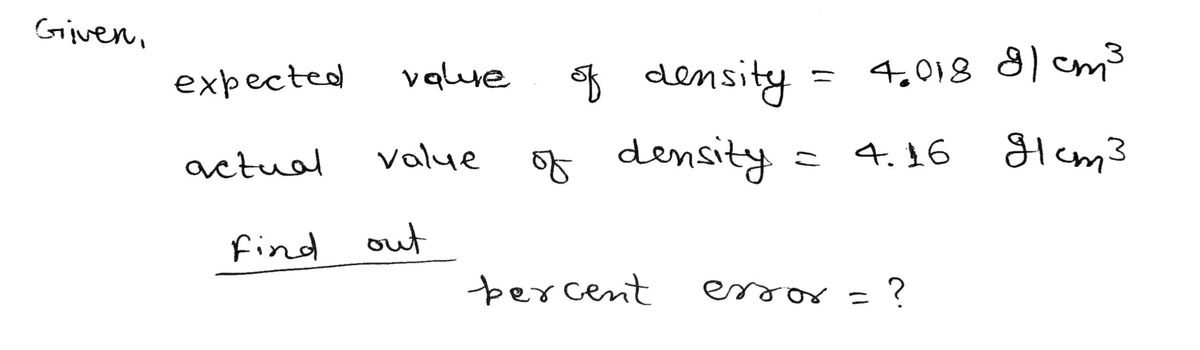 Given,
expected value of density = 4.018 g/cm³
actual value of density = 4.16 g/cm³
Find out
percent error = ?